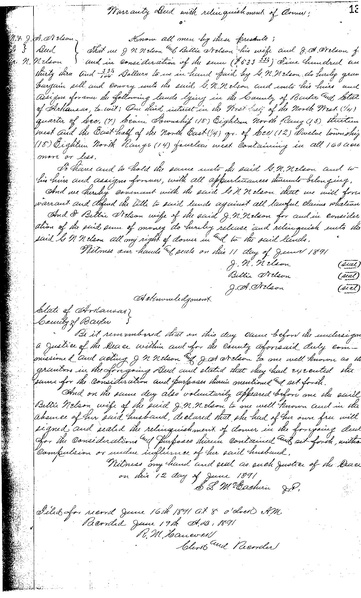 Warranty Deed with relinquishment of Dower;
13
J.A. Nelson Know all men by these presents;
Deed That we J.N. Nelson & Bettie Nelson his wife and J.A. Nelson
N. Nelson and in consideration of the sum Five hundred
thirty three and Dollars to us in hand paid by G.N. Nelson do hereby grant
bargain sell and convey unto the said G.N. Nelson and unto his heirs and
assigns forever the following lands lying in the County of Baxter and State
of Arkansas, to wit; One third interest in the West half of the North West (1/4)
quarter of Sec. (7) Township (18) Eighteen North Range (13) thirteen
west and the East half of the North East (1/4) qr. of Sec (12) Twelve Township
(18) Eighteen North Range (14) fourteen west Containing in all 160 acres
more or less.
To have and to hold the same unto the said G.N. Nelson and to
his heirs and assigns forever, with all appurtenances thereunto belonging.
And we hereby covenant with the said G.N. Nelson that we will forever
warrant and defend the title to said lands against all lawful claims whatever
And I Bettie Nelson wife of the said J.N. Nelson for and in consider
ation of the said sum of money do hereby release and relinquish unto the
said G.N. Nelson all my right of dower in & to the said lands.
Witness our hands & seals on this 11 day of June 1891
J.N. Nelson (seal)
Bettie Nelson (seal)
J.A. Nelson (seal)
Acknowledgment
State of Arkansas
County of Baxter
Be it remembered that on this day came before the undersigned
a Justice of the Peace within and for the County aforesaid duly com-
missioned and acting J.N. Nelson & J.A. Nelson to me well known as the
grantors in the foregoing Deed and stated that they had executed the
same for the consideration and purposes therein mentioned & set forth.
And on the same day also voluntarily appeared before me the said
Bettie Nelson wife of the said J.N. Nelson to me well known and in the
absence of her said husband declared she had of her own free will
signed and sealed the relinquishment of dower in the foregoing deed
for the Considerations & Purposes therein contained & set forth, without
Compulsion or undue influence of her said husband.
Witness my hand and seal as such Justice of the Peace
on this 12 day of June 1891
J.P.
Filed for record June 16th 1891 at 8 o'clock A.M.
Recorded June 19th A.D. 1891
R.M. Hancock
Clerk and Recorder